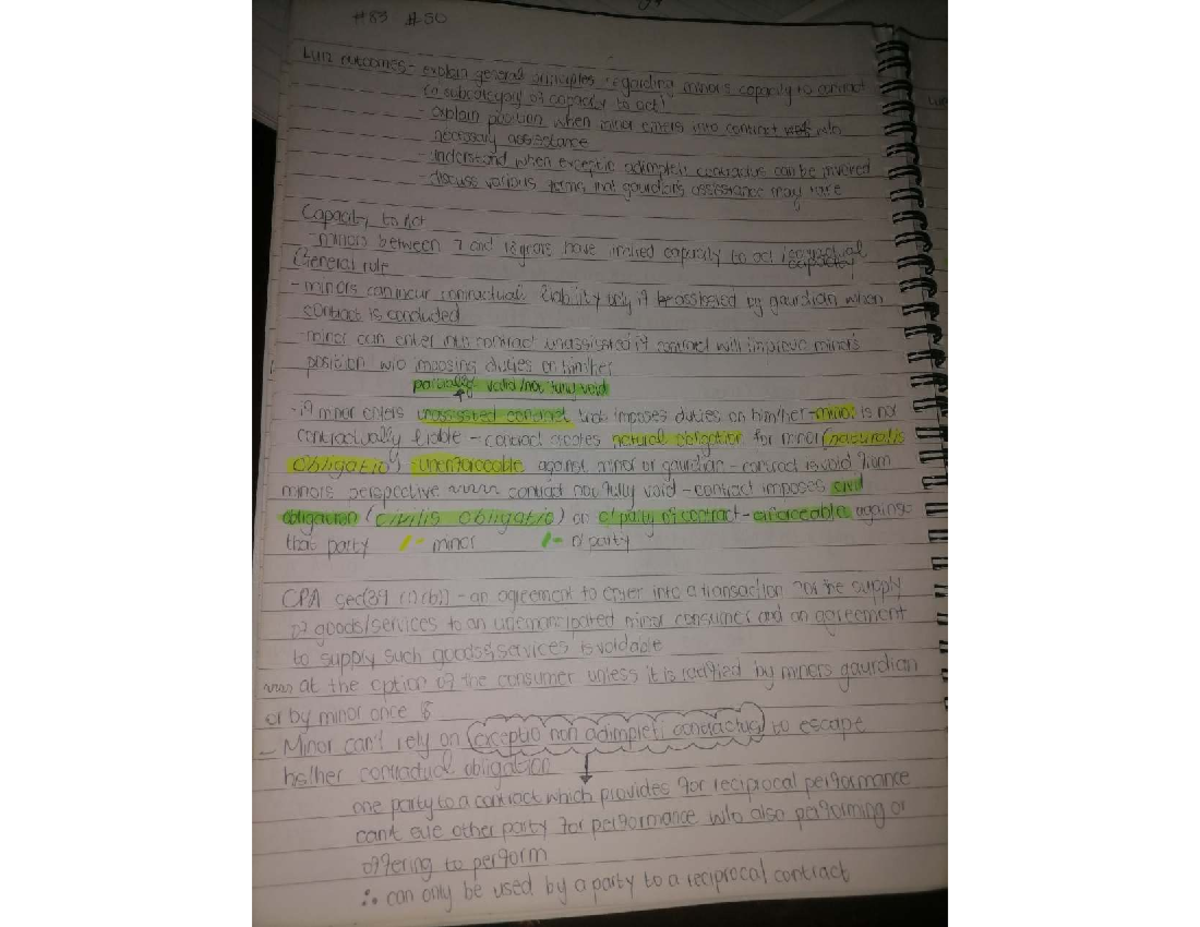 #83 #50
outcomes - explain general principles regarding minors capacity to contract
(a subcategory of capacity to act)
- explain position when minor enters into contract w/o
necessary assistance
- understand when exceptio adimpleti contractus can be invoked
- discuss various forms that gaurdian's assistance may take
Capacity to Act
- minors between 7 and 18 years have limited capacity to act (contractual
capacity)
General rule
- minors can incur contractual liability only if assisted by gaurdian when
contract is concluded
- minor can enter into contract unassisted if contract will improve minor's
position w/o imposing duties on him/her
partially valid/not fully void
- if minor enters unassisted contract that imposes duties on him/her - minor is not
contractually liable - contract creates natural obligation for minor (naturalis
obligatio) unenforceable against minor or gaurdian - contract is void from
minors perspective contract not fully void - contract imposes civil
obligation (civilis obligatio) on o/party of contract - enforceable against
that party - minor - o/party
CPA sec(39 (1)(b)) - an agreement to enter into a transaction for the supply
of goods/services to an unemancipated minor consumer and an agreement
to supply such goods & services is voidable
at the option of the consumer unless it is ratified by minors gaurdian
or by minor once 18
- Minor can't rely on (exceptio non adimpleti contractus) to escape
his/her contractual obligation
one party to a contract which provides for reciprocal performance
can't sue other party for performance w/o also performing or
offering to perform
∴ can only be used by a party to a reciprocal contract